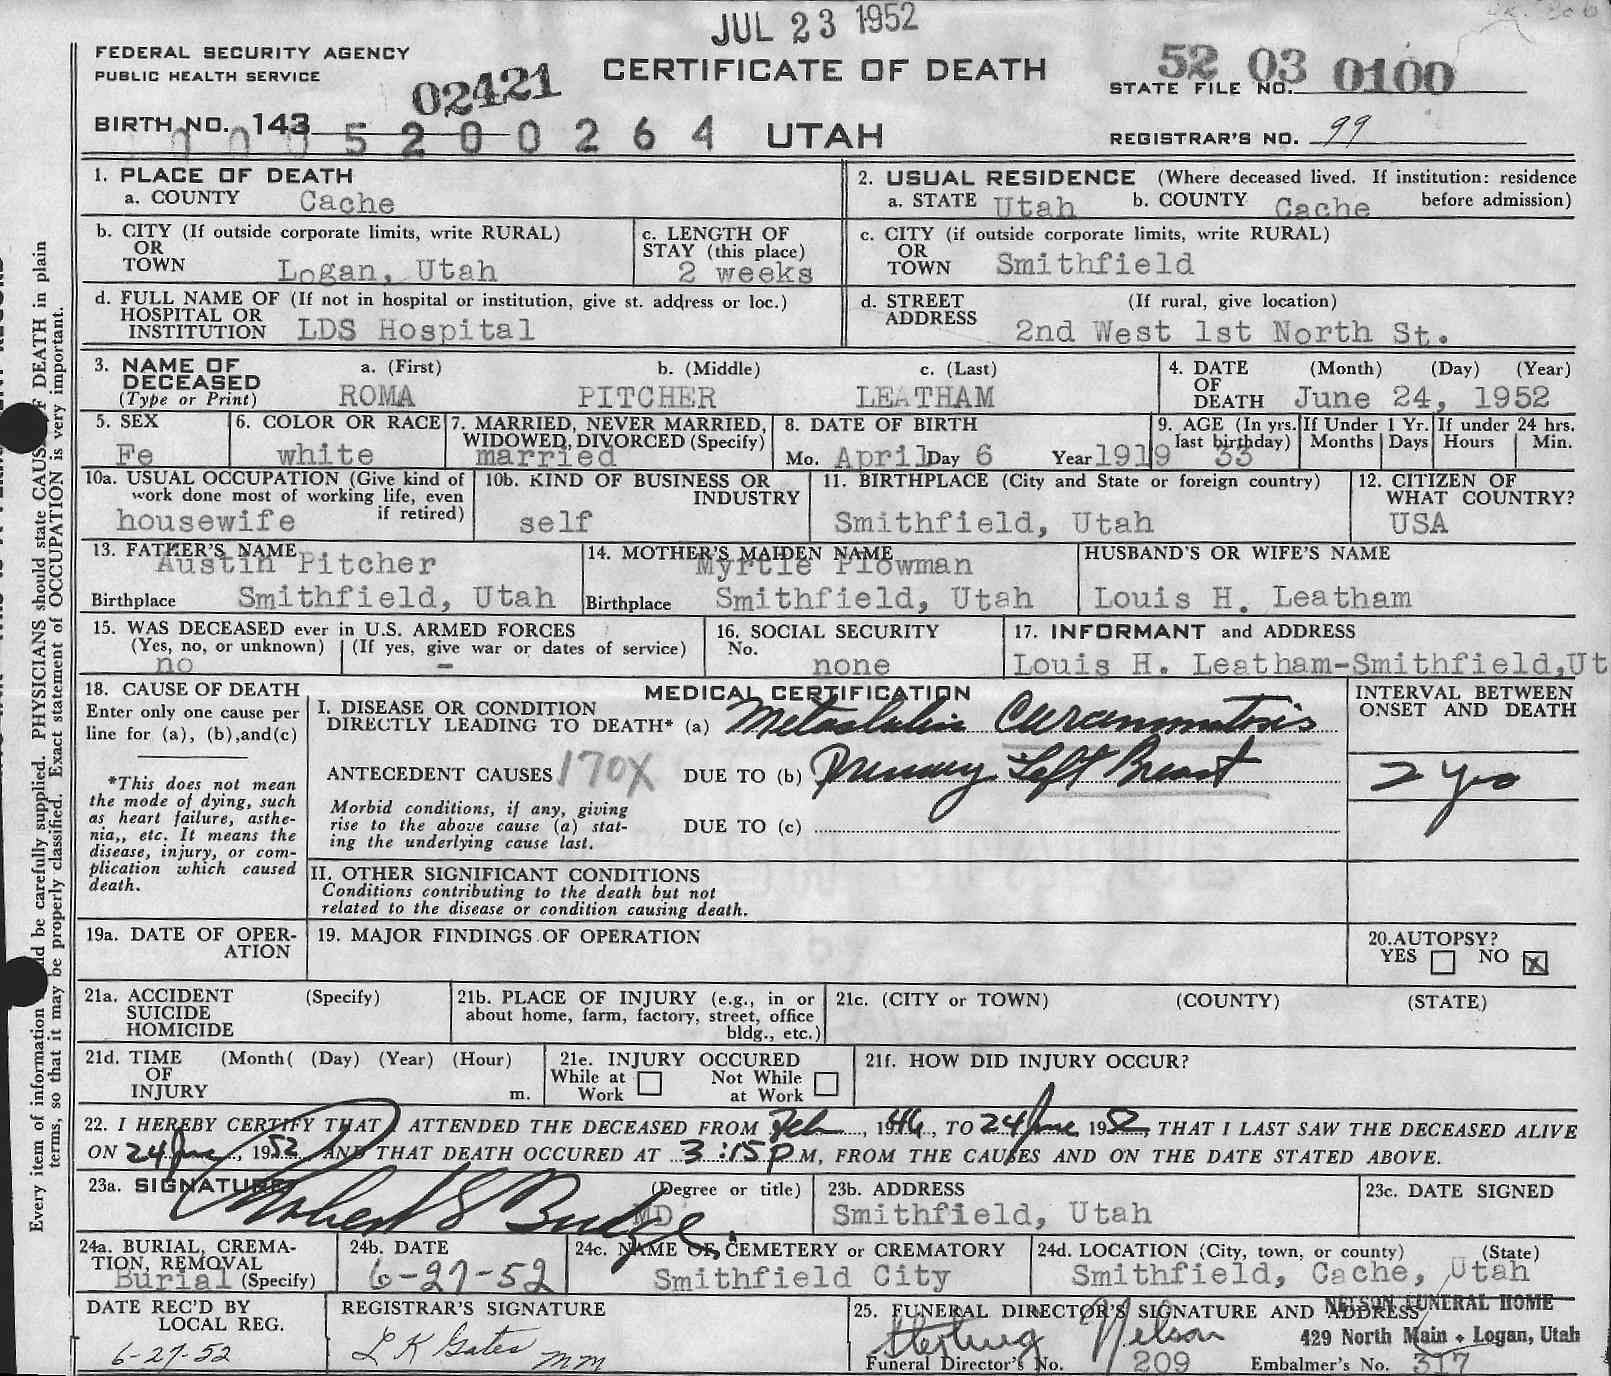 JUL 23 1952
FEDERAL SECURITY AGENCY
PUBLIC HEALTH SERVICE
02421
CERTIFICATE OF DEATH
52 03 0100
STATE FILE NO.
BIRTH NO. 143
5 2 0 0 2 6 4
UTAH
REGISTRAR'S NO. 99
1. PLACE OF DEATH
a. COUNTY Cache
2. USUAL RESIDENCE (Where deceased lived. If institution: residence before admission)
a. STATE Utah b. COUNTY Cache
b. CITY (If outside corporate limits, write RURAL)
OR
TOWN Logan, Utah
c. LENGTH OF
STAY (this place)
2 weeks
c. CITY (if outside corporate limits, write RURAL)
OR
TOWN Smithfield
d. FULL NAME OF (If not in hospital or institution, give st. address or loc.)
HOSPITAL OR
INSTITUTION LDS Hospital
d. STREET (If rural, give location)
ADDRESS 2nd West 1st North St.
3. NAME OF a. (First) b. (Middle) c. (Last)
DECEASED
(Type or Print) ROMA PITCHER LEATHAM
4. DATE (Month) (Day) (Year)
OF
DEATH June 24, 1952
5. SEX
Fe
6. COLOR OR RACE
white
7. MARRIED, NEVER MARRIED,
WIDOWED, DIVORCED (Specify)
married
8. DATE OF BIRTH
Mo. April Day 6 Year 1919
9. AGE (In yrs. last birthday)
33
If Under 1 Yr.
Months Days
If under 24 hrs.
Hours Min.
10a. USUAL OCCUPATION (Give kind of
work done most of working life, even
if retired)
housewife
10b. KIND OF BUSINESS OR
INDUSTRY
self
11. BIRTHPLACE (City and State or foreign country)
Smithfield, Utah
12. CITIZEN OF
WHAT COUNTRY?
USA
13. FATHER'S NAME
Austin Pitcher
Birthplace Smithfield, Utah
14. MOTHER'S MAIDEN NAME
Myrtle Plowman
Birthplace Smithfield, Utah
HUSBAND'S OR WIFE'S NAME
Louis H. Leatham
15. WAS DECEASED ever in U.S. ARMED FORCES
(Yes, no, or unknown) (If yes, give war or dates of service)
no -
16. SOCIAL SECURITY
No.
none
17. INFORMANT and ADDRESS
Louis H. Leatham-Smithfield,Ut
18. CAUSE OF DEATH
Enter only one cause per
line for (a), (b),and(c)
*This does not mean
the mode of dying, such
as heart failure, asthe-
nia,, etc. It means the
disease, injury, or com-
plication which caused
death.
MEDICAL CERTIFICATION
I. DISEASE OR CONDITION
DIRECTLY LEADING TO DEATH* (a) Metastatic Carcinomatosis
ANTECEDENT CAUSES 170X DUE TO (b) Primary Left Breast
Morbid conditions, if any, giving
rise to the above cause (a) stat-
ing the underlying cause last.
DUE TO (c)
INTERVAL BETWEEN
ONSET AND DEATH
2 yrs
II. OTHER SIGNIFICANT CONDITIONS
Conditions contributing to the death but not
related to the disease or condition causing death.
19a. DATE OF OPER-
ATION
19. MAJOR FINDINGS OF OPERATION
20. AUTOPSY?
YES NO X
21a. ACCIDENT (Specify)
SUICIDE
HOMICIDE
21b. PLACE OF INJURY (e.g., in or
about home, farm, factory, street, office
bldg., etc.)
21c. (CITY or TOWN) (COUNTY) (STATE)
21d. TIME (Month( (Day) (Year) (Hour)
OF
INJURY m.
21e. INJURY OCCURED
While at Work Not While at Work
21f. HOW DID INJURY OCCUR?
22. I HEREBY CERTIFY THAT I ATTENDED THE DECEASED FROM Feb, 1946, TO 24 June 1952, THAT I LAST SAW THE DECEASED ALIVE
ON 24 June, 1952 AND THAT DEATH OCCURED AT 3:15 P M, FROM THE CAUSES AND ON THE DATE STATED ABOVE.
23a. SIGNATURE (Degree or title)
Robert S Budge MD
23b. ADDRESS
Smithfield, Utah
23c. DATE SIGNED
24a. BURIAL, CREMA-
TION, REMOVAL
Burial (Specify)
24b. DATE
6-27-52
24c. NAME OF CEMETERY or CREMATORY
Smithfield City
24d. LOCATION (City, town, or county) (State)
Smithfield, Cache, Utah
DATE REC'D BY
LOCAL REG.
6-27-52
REGISTRAR'S SIGNATURE
L K Gates mm
25. FUNERAL DIRECTOR'S SIGNATURE AND ADDRESS
Sterling Nelson
NELSON FUNERAL HOME
429 North Main • Logan, Utah
Funeral Director's No. 209 Embalmer's No. 317
Every item of information should be carefully supplied. PHYSICIANS should state CAUSE OF DEATH in plain
terms, so that it may be properly classified. Exact statement of OCCUPATION is very important.